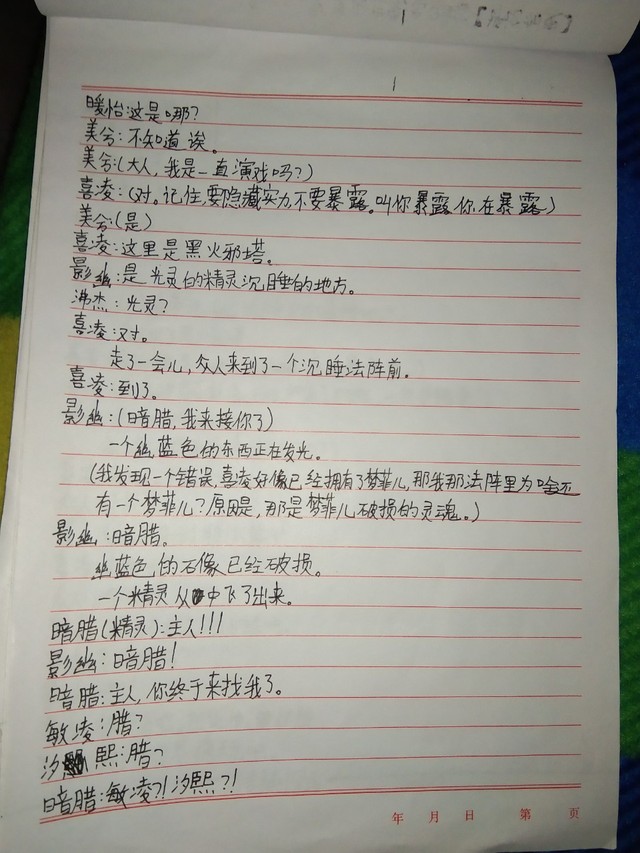 暖怡:这是哪?
美兮:不知道诶。
美兮:(大人,我是一直演戏吗?)
喜凌:(对。记住,要隐藏实力,不要暴露。叫你暴露你在暴露)
美兮:(是)
喜凌:这里是黑火邪塔。
影幽:是光灵的精灵沉睡的地方。
沸杰:光灵?
喜凌:对。
走了一会儿,众人来到了一个沉睡法阵前。
喜凌:到了。
影幽:(暗腊,我来接你了)
一个幽蓝色的东西正在发光。
(我发现一个错误,喜凌好像已经拥有了梦菲儿,那我那法阵里为啥还
有一个梦菲儿?原因是,那是梦菲儿破损的灵魂。)
影幽:暗腊。
幽蓝色的石像已经破损。
一个精灵从中飞了出来。
暗腊(精灵):主人!!!
影幽:暗腊!
暗腊:主人,你终于来找我了。
敏凌:腊?
汐熙:腊?
暗腊:敏凌?!汐熙?!
年 月 日 第 页